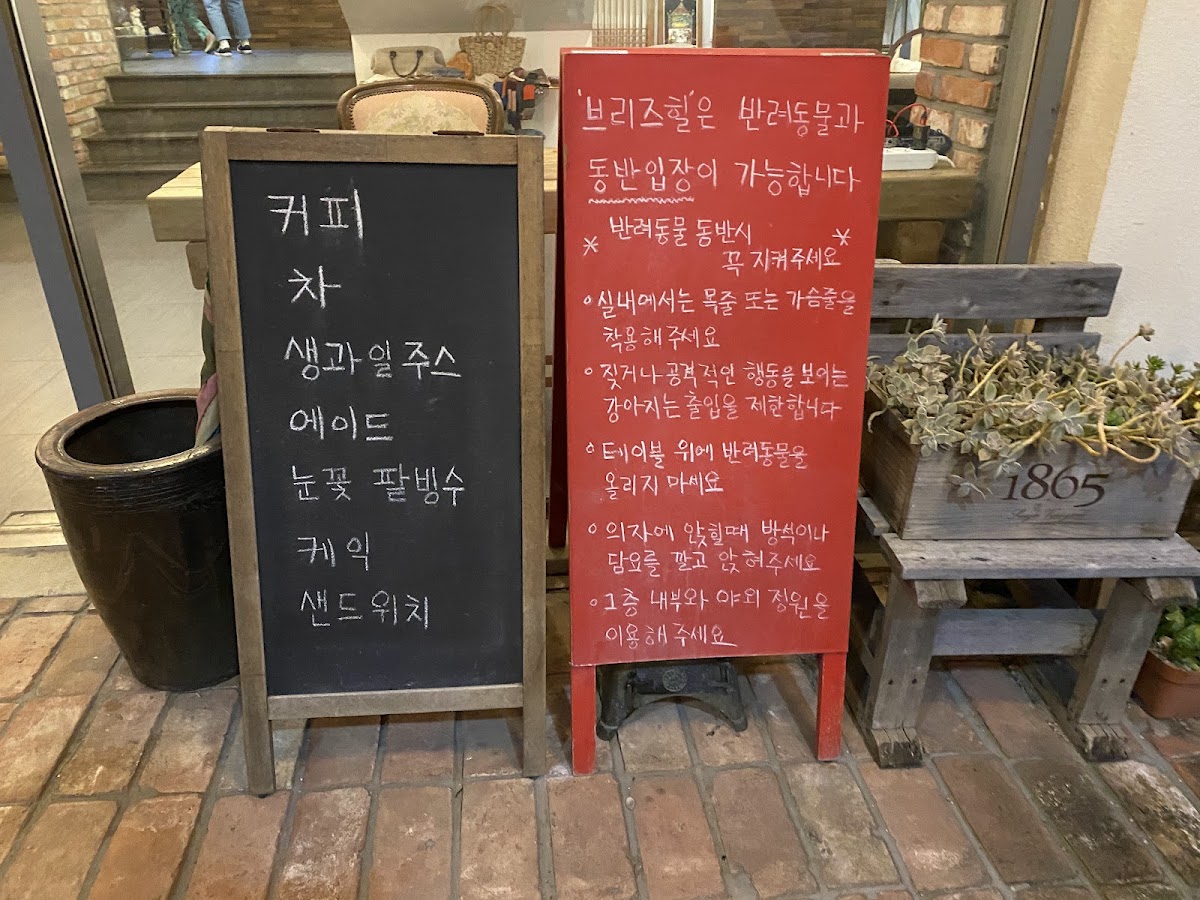 커피
차
생과일주스
에이드
눈꽃 팥빙수
케익
샌드위치
'브리즈힐'은 반려동물과
동반입장이 가능합니다
* 반려동물 동반시 *
꼭 지켜주세요
실내에서는 목줄 또는 가슴줄을
착용해주세요
짖거나 공격적인 행동을 보이는
강아지는 출입을 제한합니다
테이블 위에 반려동물을
올리지 마세요
의자에 앉힐때 방석이나
담요를 깔고 앉혀주세요
1층 내부와 야외 정원을
이용해주세요
1865